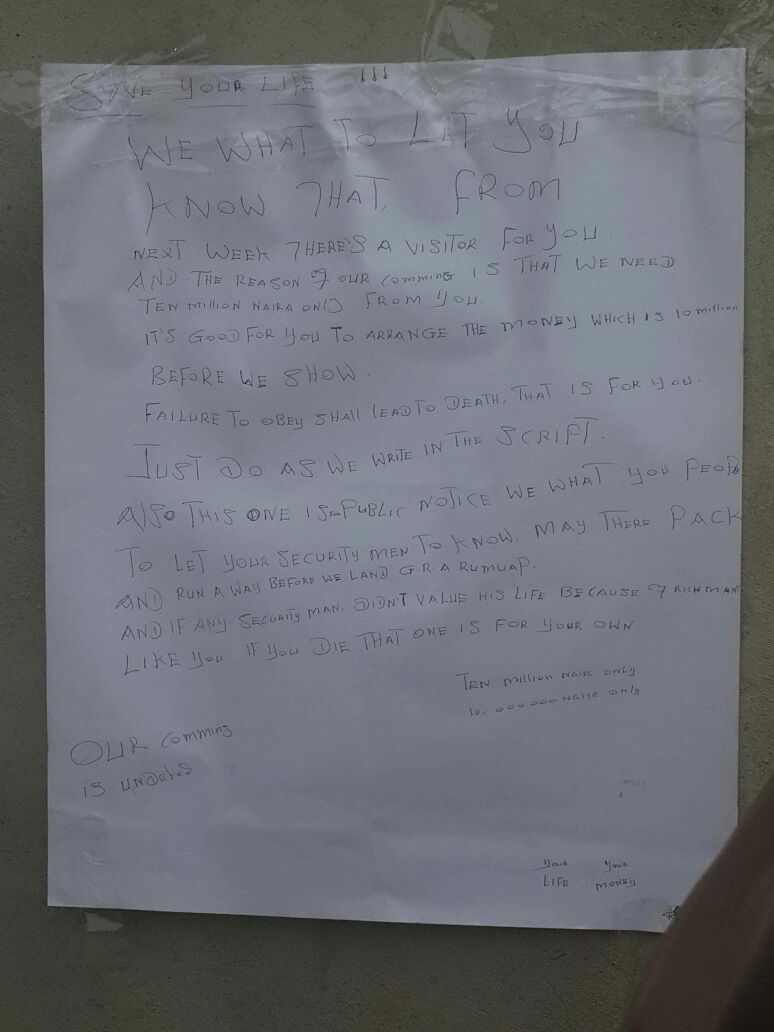 SAVE YOUR LIFE !!!
WE WHAT TO LET YOU
KNOW THAT, FROM
NEXT WEEK THERE'S A VISITOR FOR YOU.
AND THE REASON OF OUR COMMING IS THAT WE NEED
TEN MILLION NAIRA ONLY FROM YOU.
IT'S GOOD FOR YOU TO ARRANGE THE MONEY WHICH IS 10 million
BEFORE WE SHOW.
FAILURE TO OBEY SHALL LEAD TO DEATH, THAT IS FOR YOU.
JUST DO AS WE WRITE IN THE SCRIPT.
ALSO THIS ONE IS PUBLIC NOTICE WE WHAT YOU PEOPLE
TO LET YOUR SECURITY MEN TO KNOW, MAY THERE PACK
AND RUN A WAY BEFORE WE LAND G R A RUMUAP.
AND IF ANY SECURITY MAN. DIDNT VALUE HIS LIFE BECAUSE OF RICH MAN
LIKE YOU IF YOU DIE THAT ONE IS FOR YOUR OWN.
TEN million Naira only
10,000 000 Naira only
OUR comming
is undated
Your Your
LIFE MONEY